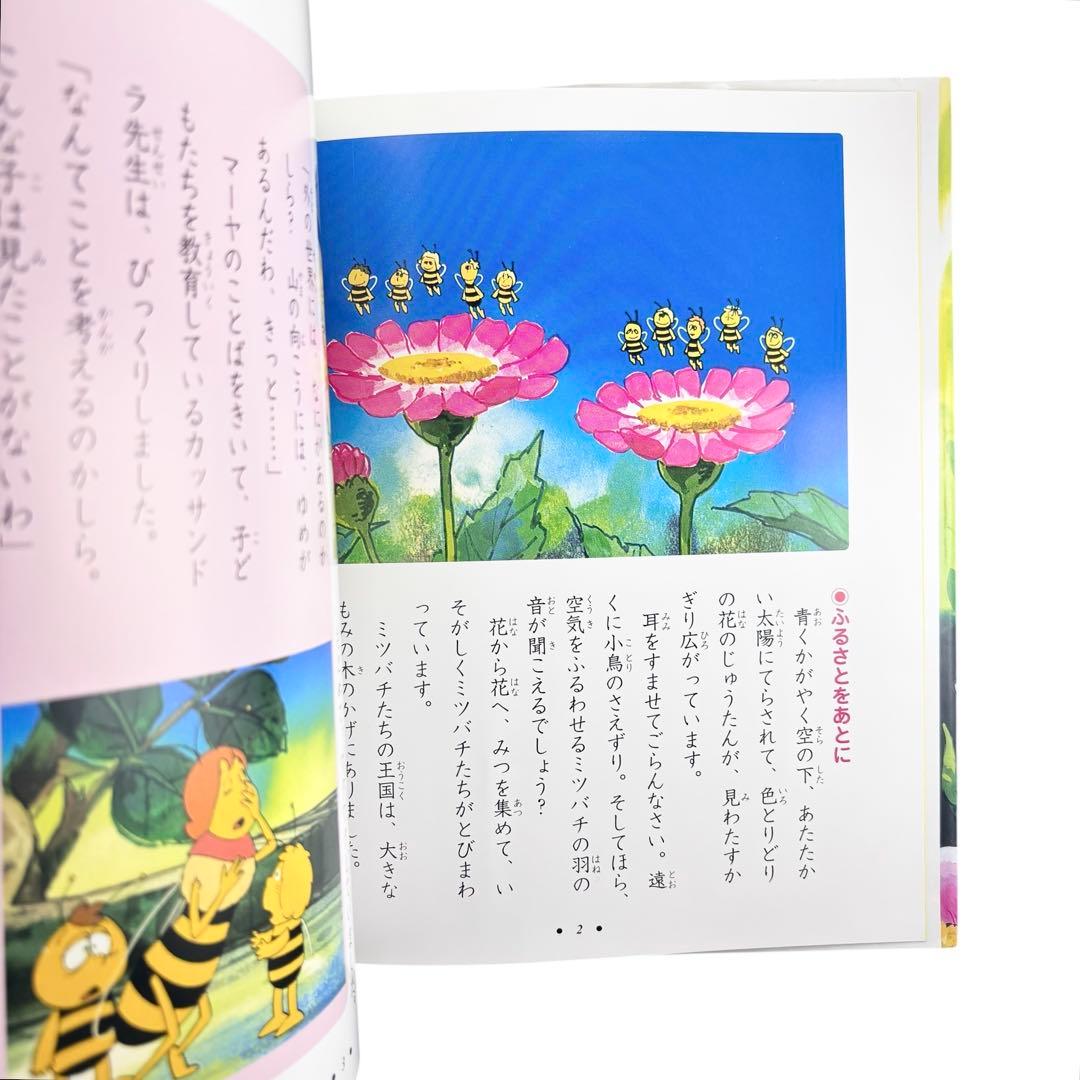 ●ふるさとをあとに
青くかがやく空の下、あたたか
い太陽にてらされて、色とりどり
の花のじゅうたんが、見わたすか
ぎり広がっています。
耳をすませてごらんなさい。遠
くに小鳥のさえずり。そしてほら、
空気をふるわせるミツバチの羽の
音が聞こえるでしょう?
花から花へ、みつを集めて、い
そがしくミツバチたちがとびまわ
っています。
ミツバチたちの王国は、大きな
もみの木のかげにありました。
• 2 •
「外の世界には なにがあるのか
しら? 山の向こうには、ゆめが
あるんだわ、きっと……」
マーヤのことばをきいて、子ど
もたちを教育しているカッサンド
ラ先生は、びっくりしました。
「なんてことを考えるのかしら。
こんな子は見たことがないわ」
3 •